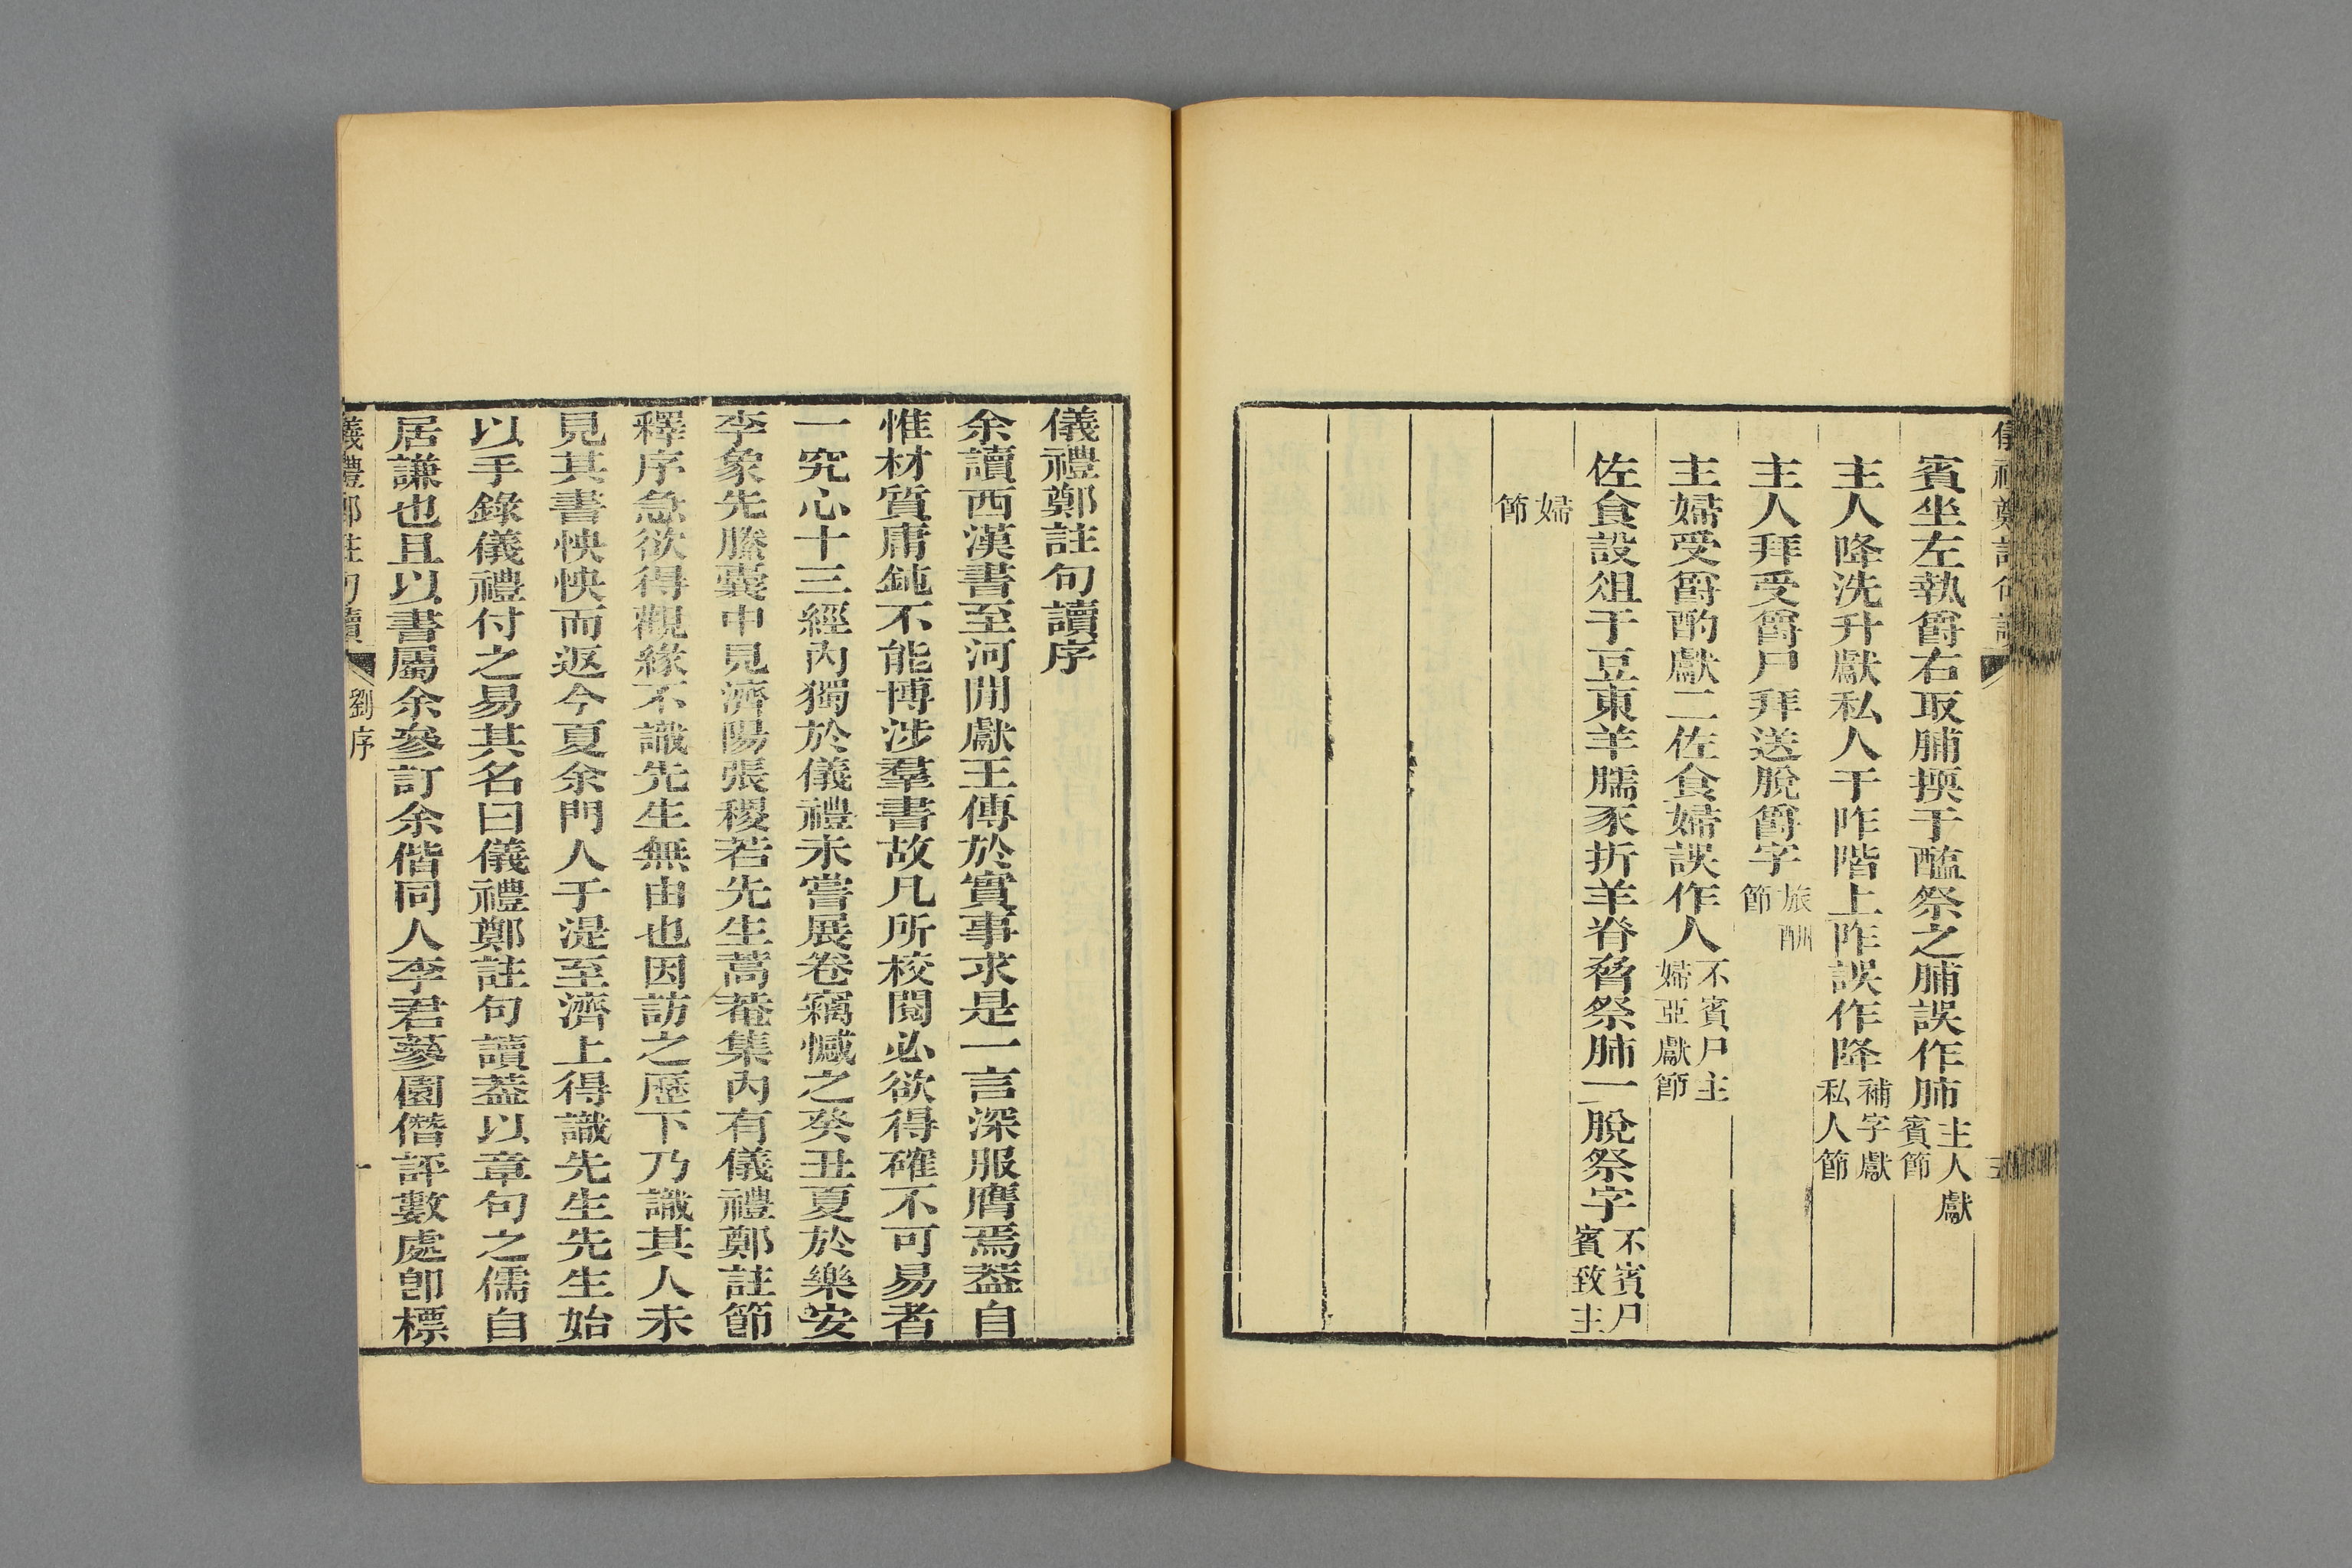 賓坐左執爵右取脯擩于醢祭之脯誤作肺主人獻賓節
主人降洗升獻私人于阼階上阼誤作降補字獻私人節
主人拜受爵尸拜送脫爵字旅酬節
主婦受爵酌獻二佐食婦誤作人不賓尸主婦亞獻節
佐食設俎于豆東羊臑豕折羊脊脅祭肺一脫祭字不賓尸賓致主
婦節
儀禮鄭註句讀序
余讀西漢書至河閒獻王傳於實事求是一言深服膺焉葢自
惟材質庸鈍不能博涉羣書故凡所校閱必欲得確不可易者
一究心十三經內獨於儀禮未嘗展卷竊憾之癸丑夏於樂安
李象先縢囊中見濟陽張稷若先生蒿菴集內有儀禮鄭註節
釋序急欲得觀緣不識先生無由也因訪之歷下乃識其人未
見其書怏怏而返今夏余門人于湜至濟上得識先生先生始
以手錄儀禮付之易其名曰儀禮鄭註句讀葢以章句之儒自
居謙也且以書屬余參訂余偕同人李君蔘園僭評數處卽標
儀禮鄭註句讀 劉序 一